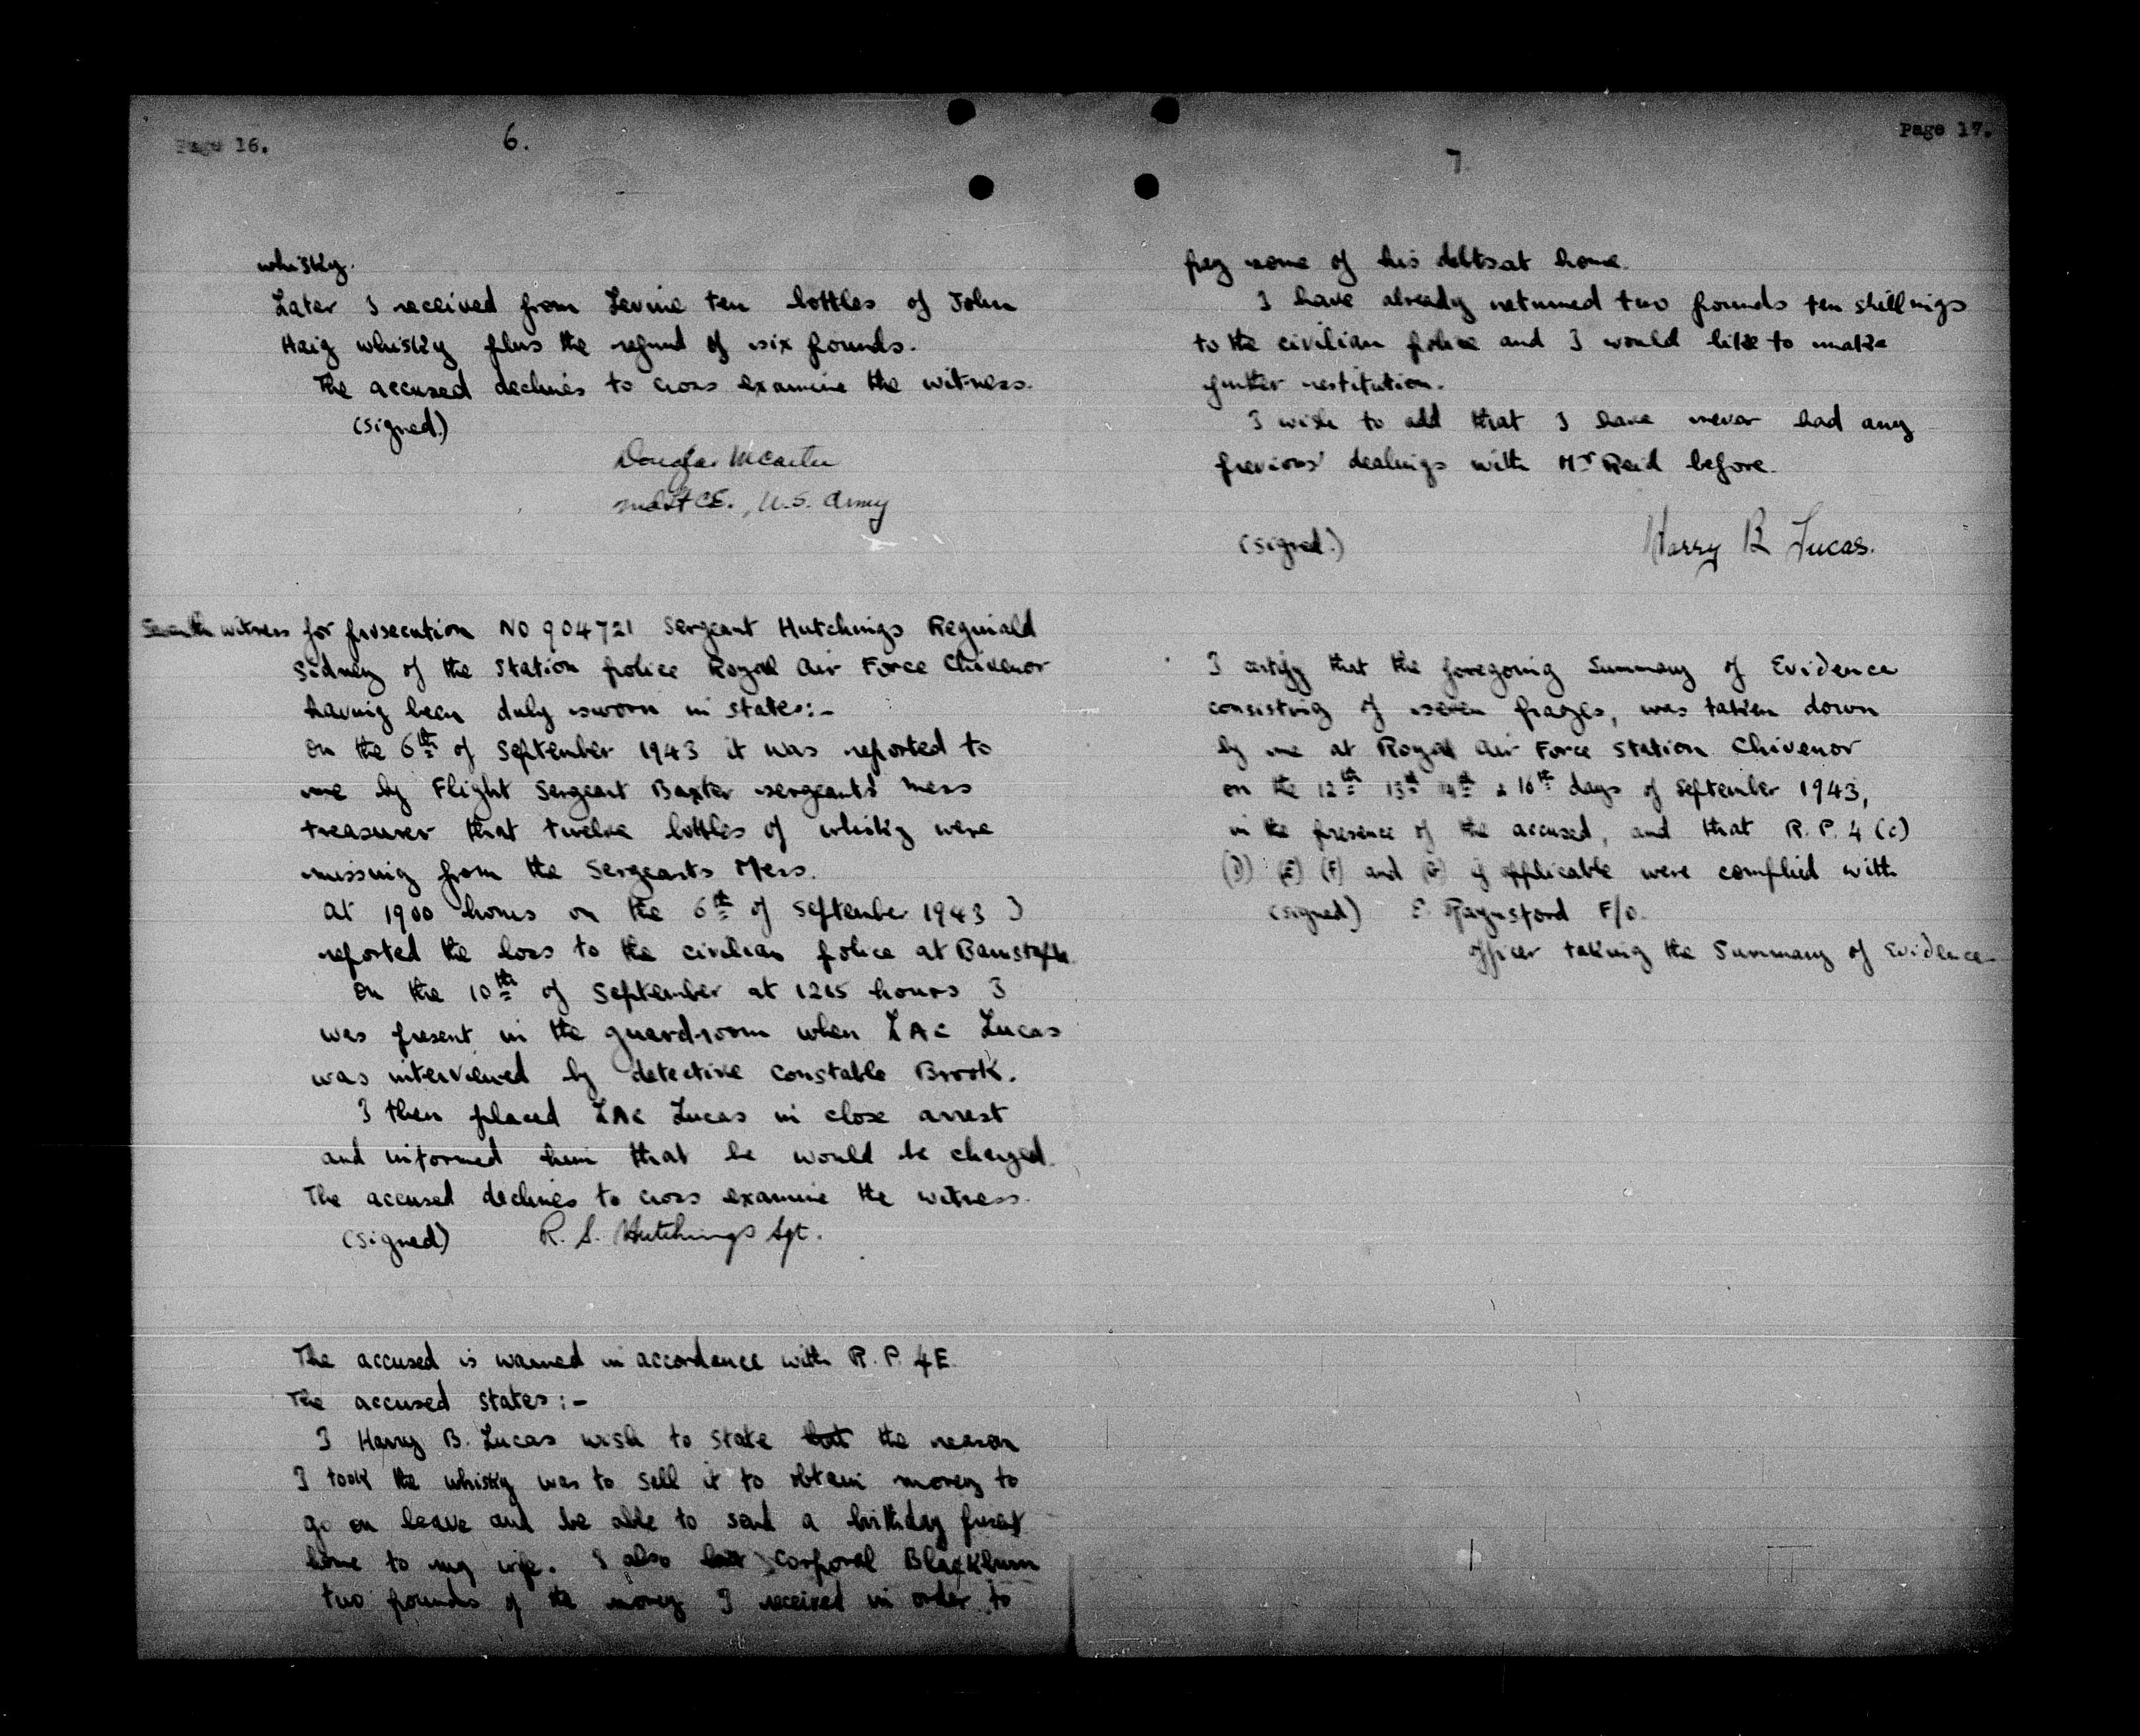 Page 16.
6.
whisky.
Later I received from Levine ten bottles of John
Haig whisky plus the refund of six pounds.
The accused declines to cross examine the witness.
(signed.)
Douglas McCarter
2nd Lt CE., U.S. Army
Seventh witness for prosecution No 904721 Sergeant Hutchings Reginald
Sidney of the Station police Royal Air Force Chivenor
having been duly sworn in states:-
On the 6th of September 1943 it was reported to
me by Flight Sergeant Baxter sergeants' mess
treasurer that twelve bottles of whisky were
missing from the Sergeants Mess.
At 1900 hours on the 6th of September 1943 I
reported the loss to the civilian police at Barnstaple
On the 10th of September at 1215 hours I
was present in the guardroom when LAC Lucas
was interviewed by detective constable Brook.
I then placed LAC Lucas in close arrest
and informed him that he would be charged.
The accused declines to cross examine the witness.
(signed) R. S. Hutchings Sgt.
The accused is warned in accordance with R.P. 4E.
The accused states:-
I Harry B. Lucas wish to state that the reason
I took the whisky was to sell it to obtain money to
go on leave and be able to send a birthday present
home to my wife. I also Corporal Blackburn
two pounds of the money I received in order to
Page 17.
7.
pay some of his debts at home.
I have already returned two pounds ten shillings
to the civilian police and I would like to make
further restitution.
I wish to add that I have never had any
previous dealings with Mr Reid before.
(signed.) Harry B Lucas.
I certify that the foregoing Summary of Evidence
consisting of seven pages, was taken down
by me at Royal Air Force Station Chivenor
on the 12th 13th 14th & 16th days of September 1943,
in the presence of the accused, and that R.P. 4 (c)
(D) (E) (F) and (G) if applicable were complied with
(signed) E. Raynsford F/O.
officer taking the Summary of Evidence